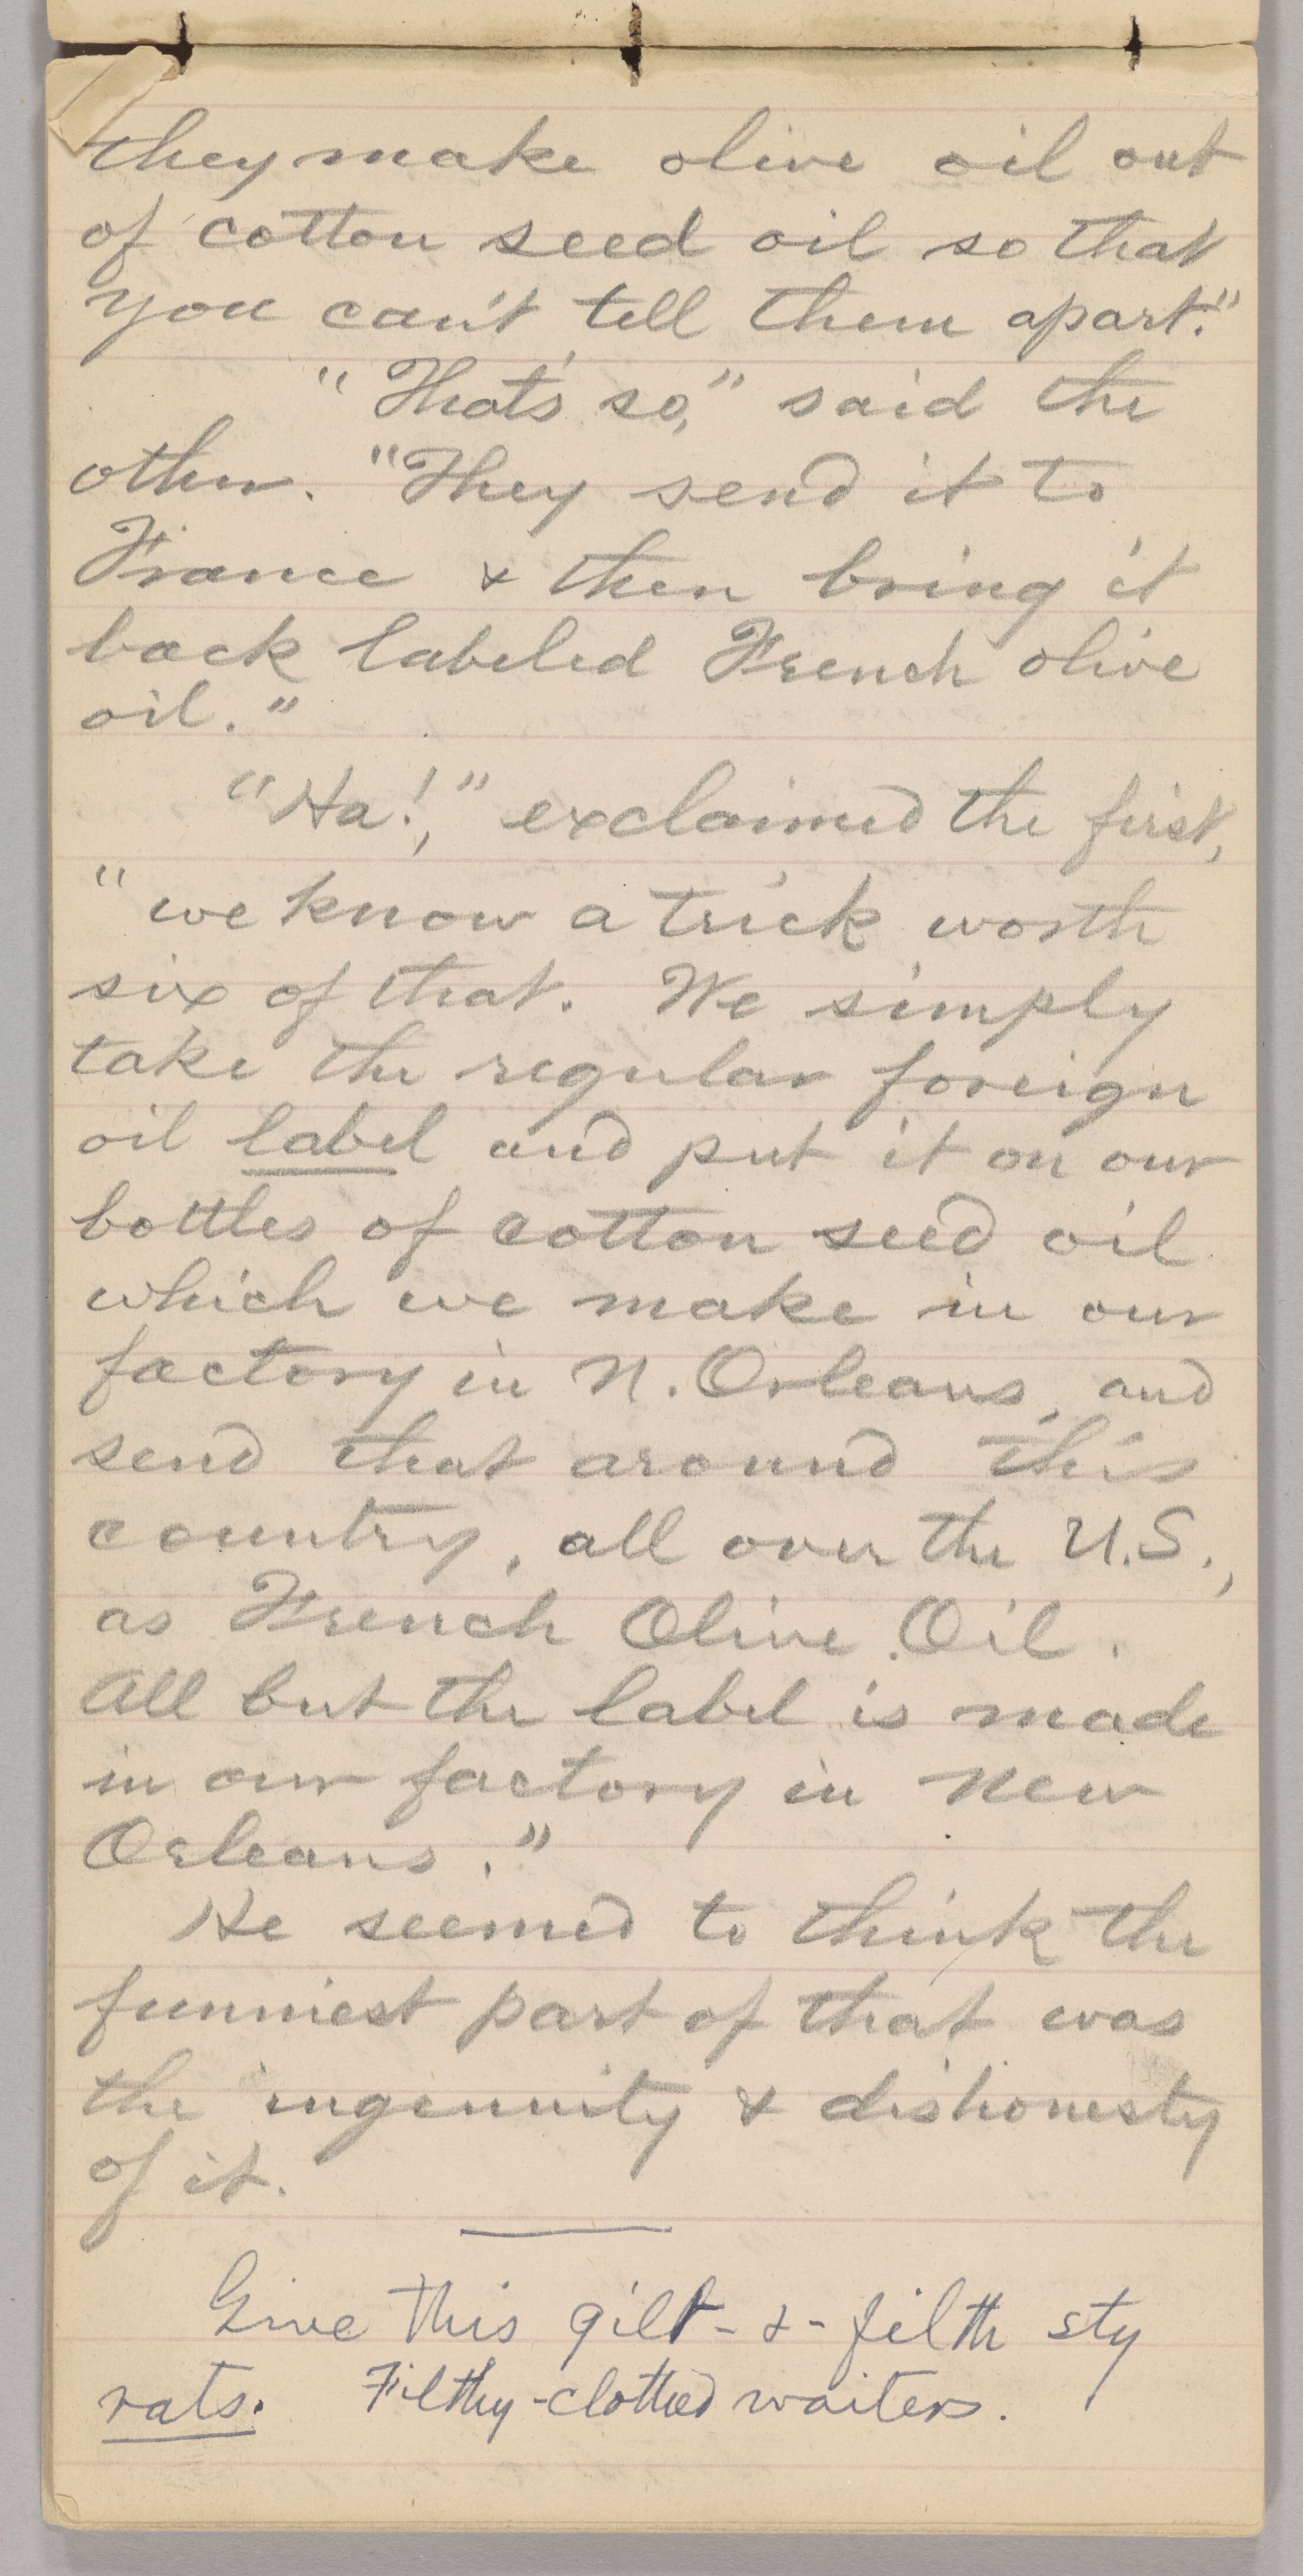 they make olive oil out
of cotton seed oil so that
you can't tell them apart."
"That's so," said the
other. "They send it to
France & then bring it
back labeled French olive
oil."
"Ha!," exclaimed the first,
"we know a trick worth
six of that. We simply
take the regular foreign
oil label and put it on our
bottles of cotton seed oil
which we make in our
factory in N. Orleans, and
send that around this
country, all over the U.S.,
as French Olive Oil.
All but the label is made
in our factory in New
Orleans."
He seemed to think the
funniest part of that was
the ingenuity & dishonesty
of it.
Give this gilt-&-filth sty
rats. Filthy-clothed waiters.